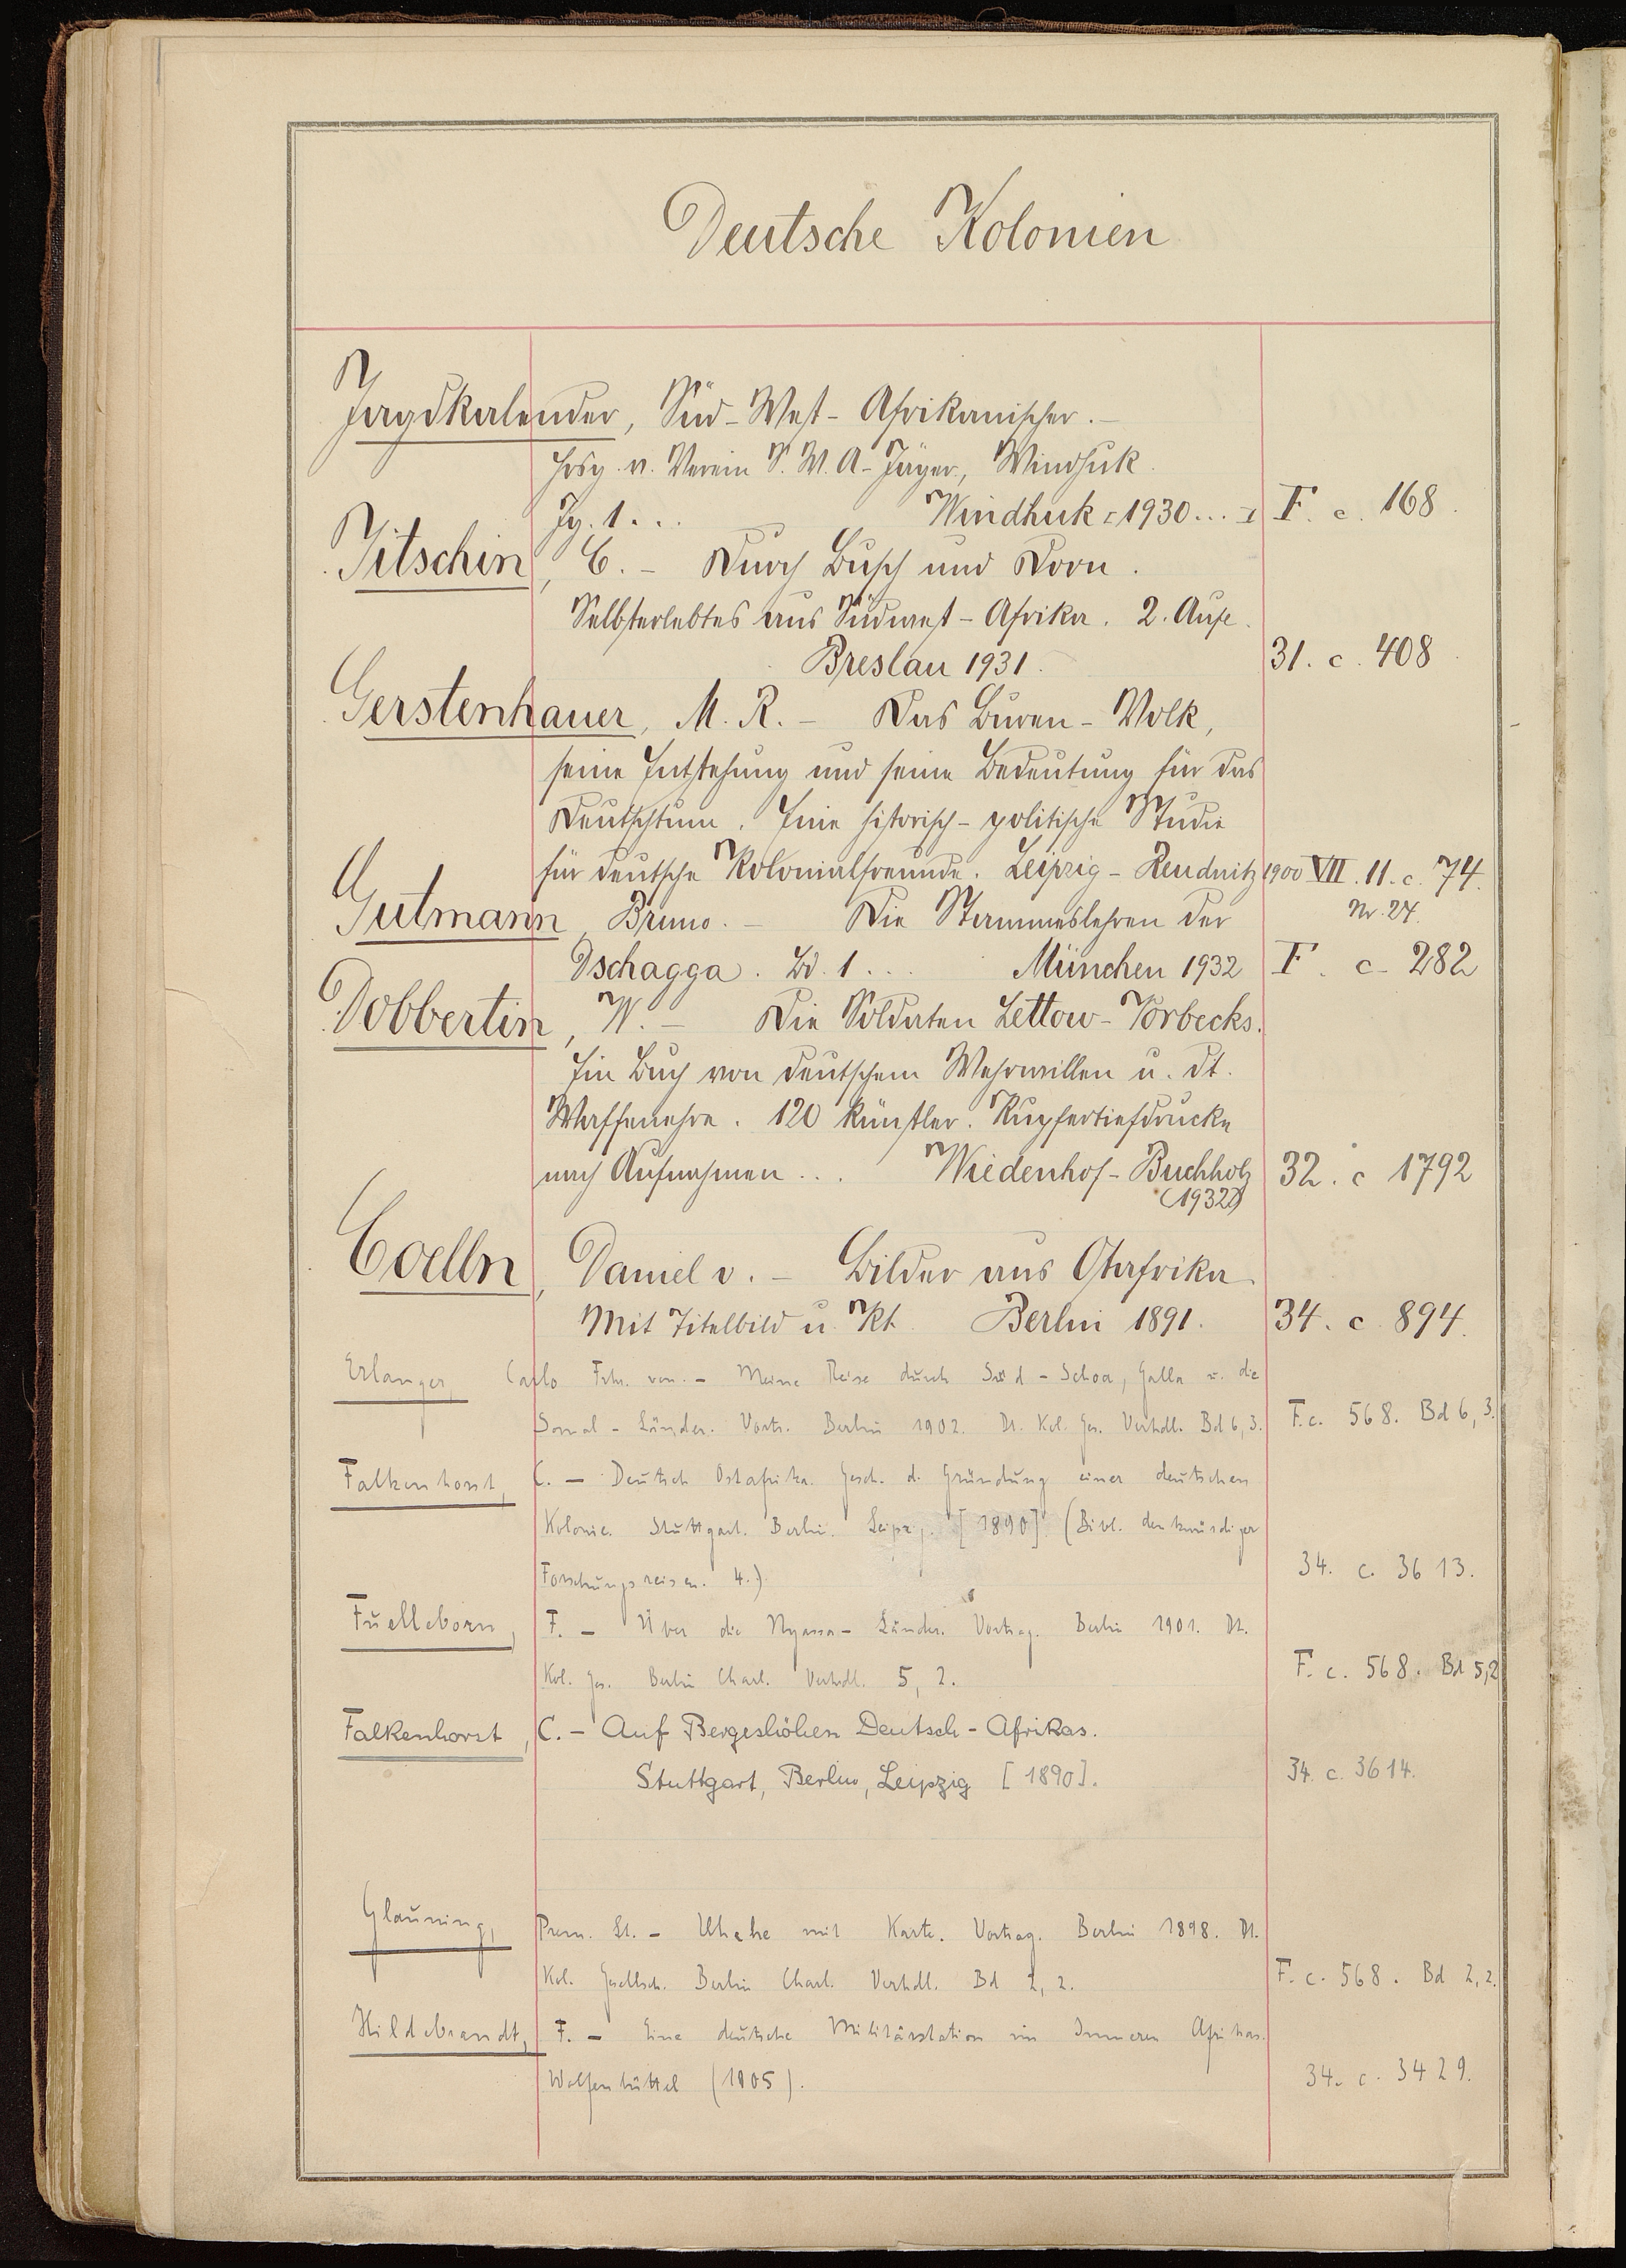 Deutsche Kolonien
Jagdkalender, Süd-West-Afrikanischer.-
Hrsg. v. Verein S. W. A-Jäger, Windhuk.
Jg. 1... Windhuk [1930...] F. c. 168.
Jitschin, C. - Durch Busch und Dorn.
Selbsterlebtes aus Südwest-Afrika. 2. Aufl.
Breslau 1931. 31. c. 408
Gerstenhauer, M. R. - Das Buren-Volk,
seine Entstehung und seine Bedeutung für das
Deutschtum. Eine historisch-politische Studie
für deutsche Kolonialfreunde. Leipzig-Reudnitz 1900 VII. 11. c. 74.
Nr. 24.
Gutmann, Bruno. - Die Stammeslehren der
Dschagga. Bd. 1... München 1932 F. c. 282
Dobbertin, W. - Die Soldaten Lettow-Vorbecks.
Ein Buch von deutschem Wehrwillen u. dt.
Waffenehre. 120 künstler. Kupfertiefdrucke
nach Aufnahmen... Wiedenhof-Buchholz 32. c 1792
(1932)
Coelln, Daniel v. - Bilder aus Ostafrika.
Mit Titelbild u. Kt. Berlin 1891. 34. c. 894.
Erlanger, Carlo Frhr. von. - Meine Reise durch Süd-Schoa, Galla u. die
Somal-Länder. Vortr. Berlin 1902. Dt. Kol. Ges. Verhdl. Bd 6, 3. F. c. 568. Bd 6, 3.
Falkenhorst, C. - Deutsch Ostafrika. Gesch. d. Gründung einer deutschen
Kolonie. Stuttgart. Berlin. Leipzig. [1890] (Bibl. denkwürdiger
Forschungsreisen. 4.) 34. c. 3613.
Fuelleborn, F. - Über die Nyassa-Länder. Vortrag. Berlin 1901. Dt.
Kol. Ges. Berlin Charl. Verhdl. 5, 2. F. c. 568. Bd 5,2
Falkenhorst, C. - Auf Bergeshöhen Deutsch-Afrikas.
Stuttgart, Berlin, Leipzig [1890]. 34. c. 3614.
Glauning, Prem. Lt. - Uhehe mit Karte. Vortrag. Berlin 1898. Dt.
Kol. Gesellsch. Berlin Charl. Verhdl. Bd 2, 2. F. c. 568. Bd 2, 2.
Hildebrandt, F. - Eine deutsche Militärstation im Inneren Afrikas.
Wolfenbüttel (1905). 34. c. 3429.